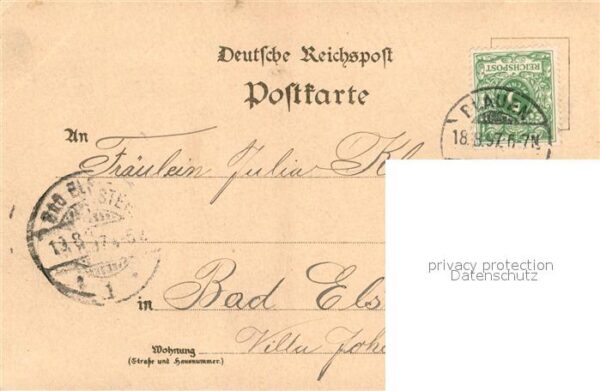 Deutsche Reichspost
Postkarte
REICHSPOST
PLAUEN
18.8.97.6-7N.
An
Fräulein Julia Kl
BAD ELSTER
19.8.97.
1
in Bad Els
Villa Joh
Wohnung
(Straße und Hausnummer.)
privacy protection
Datenschutz